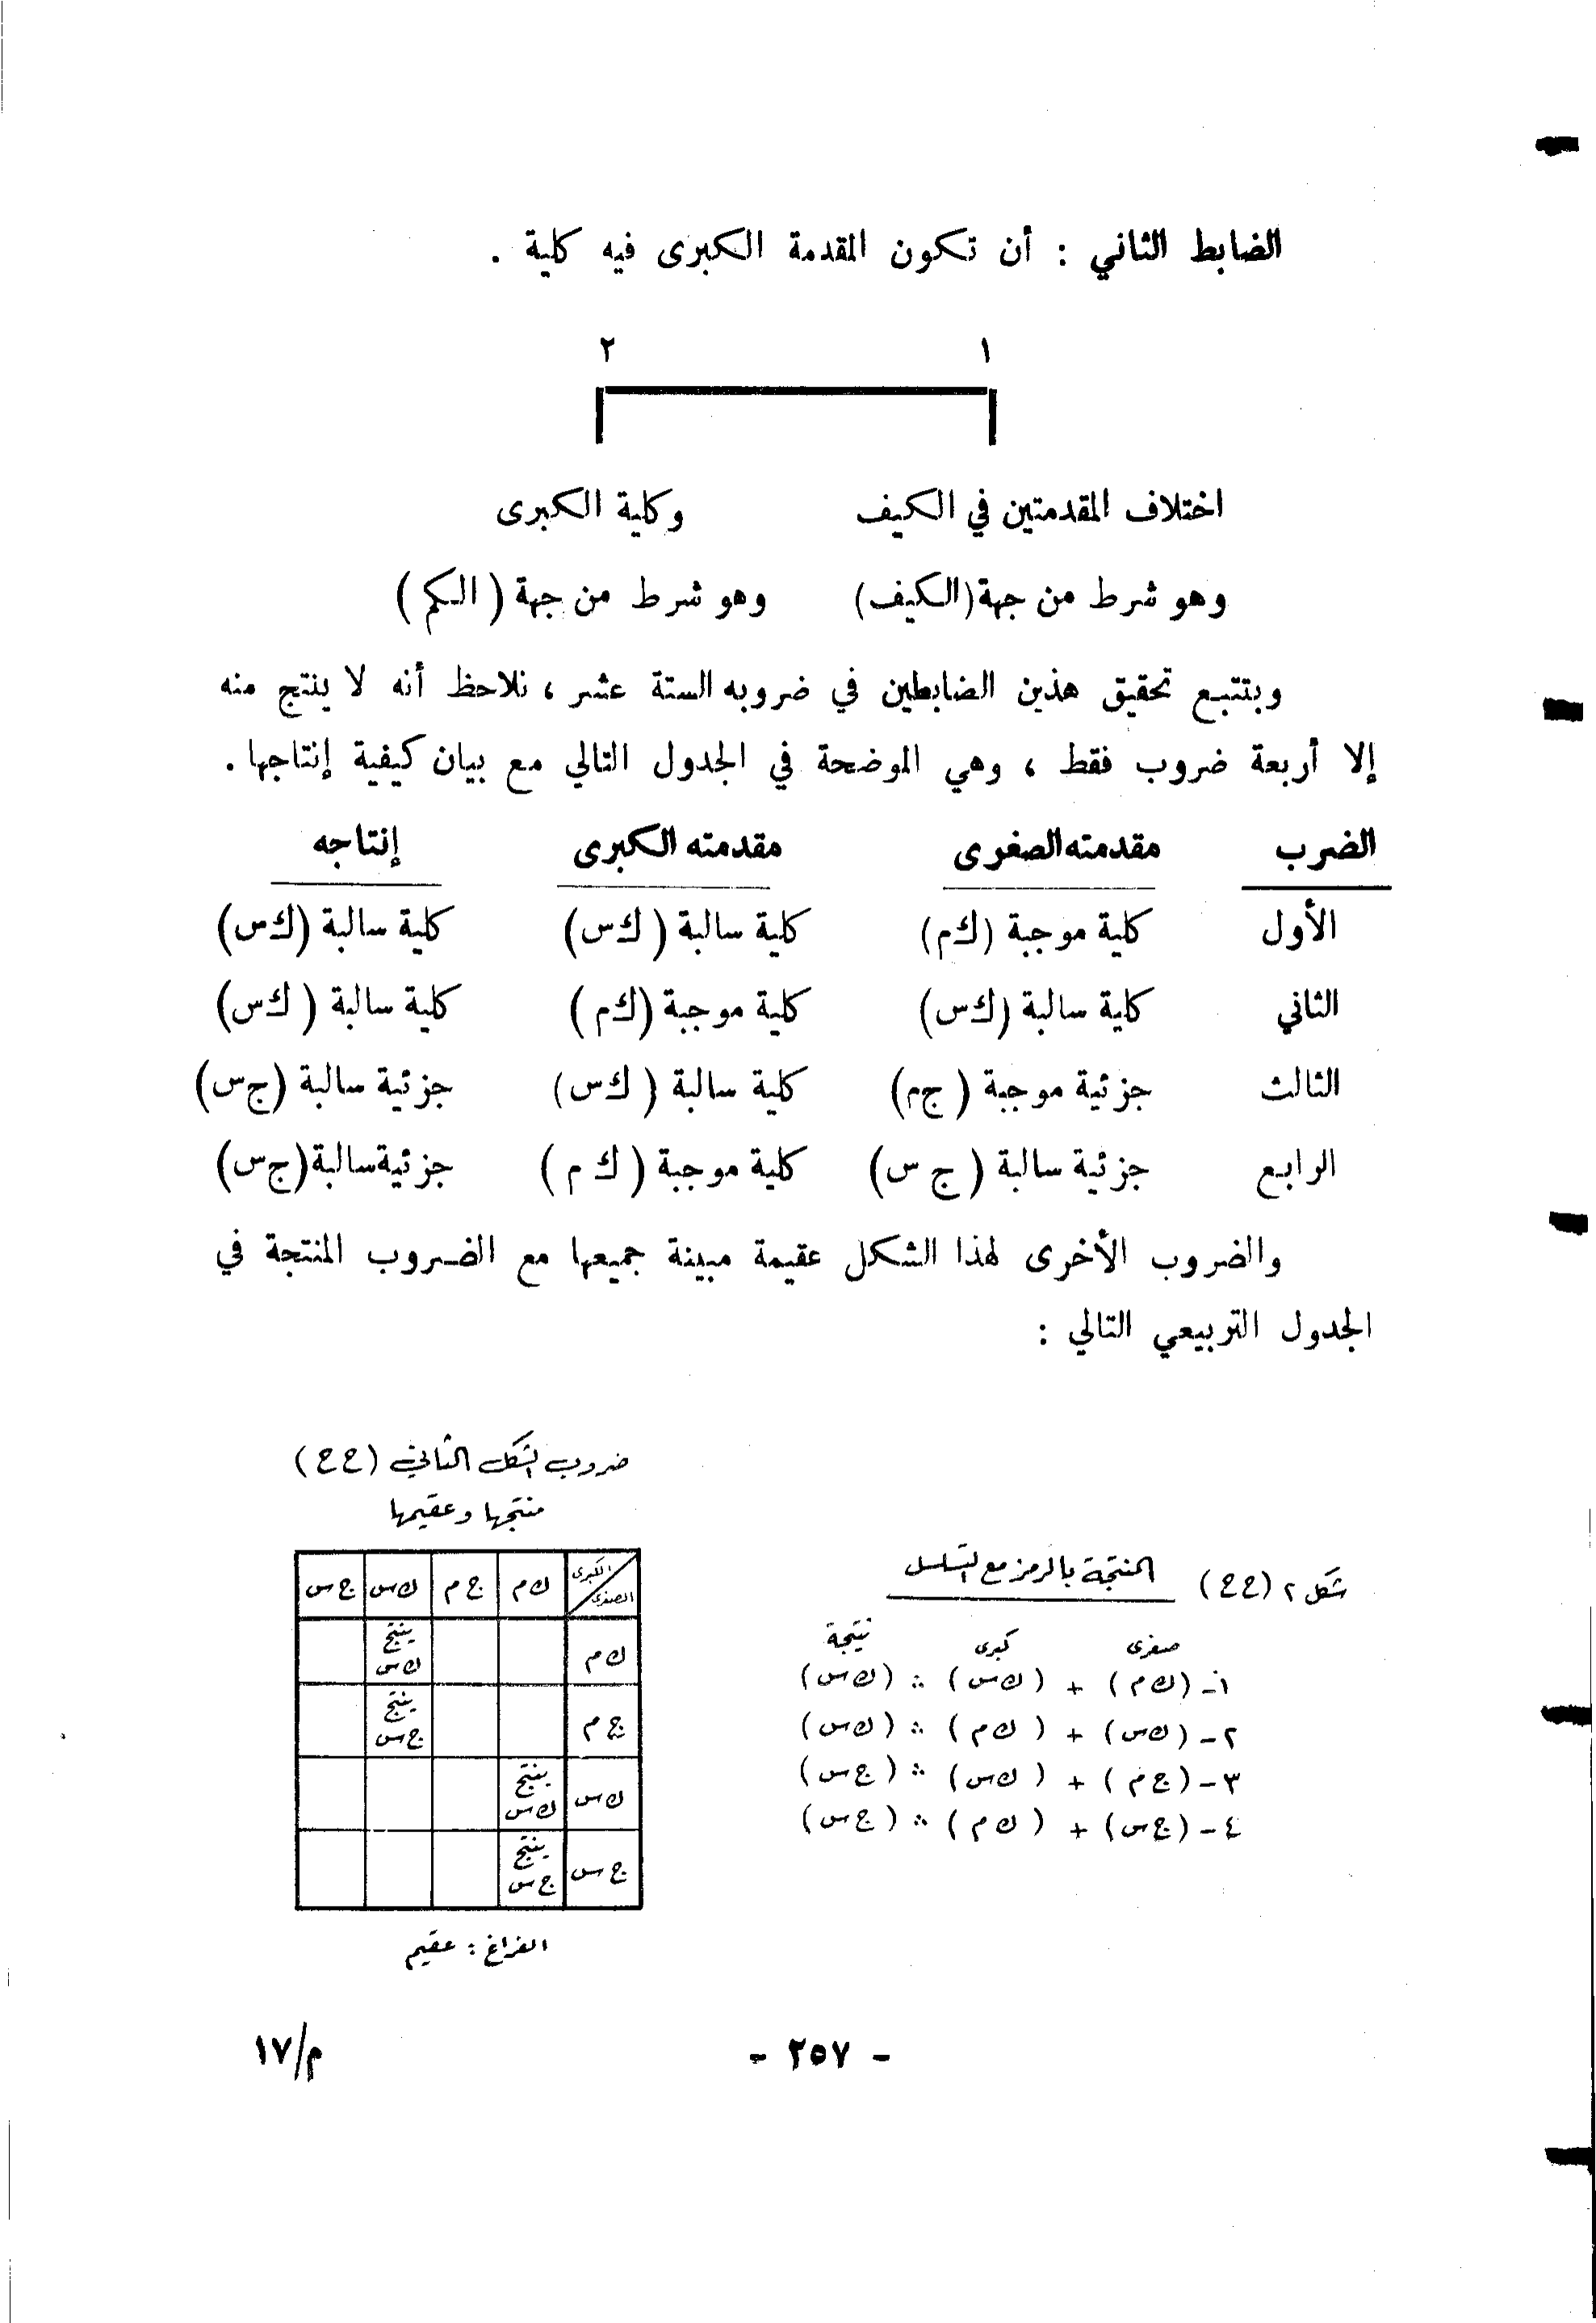 الضابط الثاني : أن تكون المقدمة الكبرى فيه كلية .
١ ٢
اختلاف المقدمتين في الكيف وكلية الكبرى
وهو شرط من جهة (الكيف) وهو شرط من جهة ( الكم )
وبتتبع تحقيق هذين الضابطين في ضروبه الستة عشر ، نلاحظ أنه لا ينتج منه
إلا أربعة ضروب فقط ، وهي الموضحة في الجدول التالي مع بيان كيفية إنتاجها .
الضرب مقدمته الصغرى مقدمته الكبرى إنتاجه
الأول كلية موجبة (ك م) كلية سالبة ( ك س) كلية سالبة (ك س)
الثاني كلية سالبة (ك س) كلية موجبة (ك م ) كلية سالبة ( ك س)
الثالث جزئية موجبة ( ج م) كلية سالبة ( ك س) جزئية سالبة (ج س)
الرابع جزئية سالبة ( ج س ) كلية موجبة ( ك م ) جزئية سالبة (ج س)
والضروب الأخرى لهذا الشكل عقيمة مبينة جميعها مع الضروب المنتجة في
الجدول التربيعي التالي :
شكل ٢ (ح ح) المنتجة بالرمز مع التسلسل
صغرى كبرى نتيجة
١- (ك م ) + ( ك س ) ∴ (ك س)
٢- (ك س) + ( ك م ) ∴ (ك س)
٣- (ج م ) + ( ك س ) ∴ (ج س)
٤- (ج س) + ( ك م ) ∴ (ج س)
ضروب الشكل الثاني (ح ح)
منتجها وعقيمها
الكبرى
الصغرى
ك م ج م ك س ج س
ك م ينتج ك س
ج م ينتج ج س
ك س ينتج ك س
ج س ينتج ج س
الفراغ : عقيم
- ٢٥٧ -
م/١٧